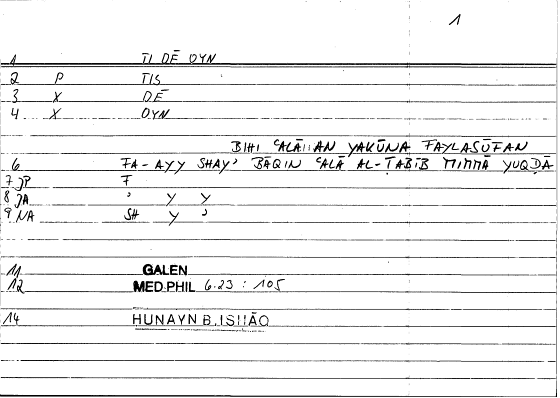 1
1 TI DĒ OYN
2 P TIS
3 X DĒ
4 X OYN
BIHI ʿALĀ AN YAKŪNA FAYLASŪFAN
6 FA-AYY SHAYʾ BĀQIN ʿALĀ AL-ṬABĪB MIMMĀ YUQḌĀ
7 JP F
8 JA ʾ Y Y
9 NA SH Y ʾ
11 GALEN
12 MED.PHIL 6.23 : 105
14 HUNAYN B. ISḤĀQ